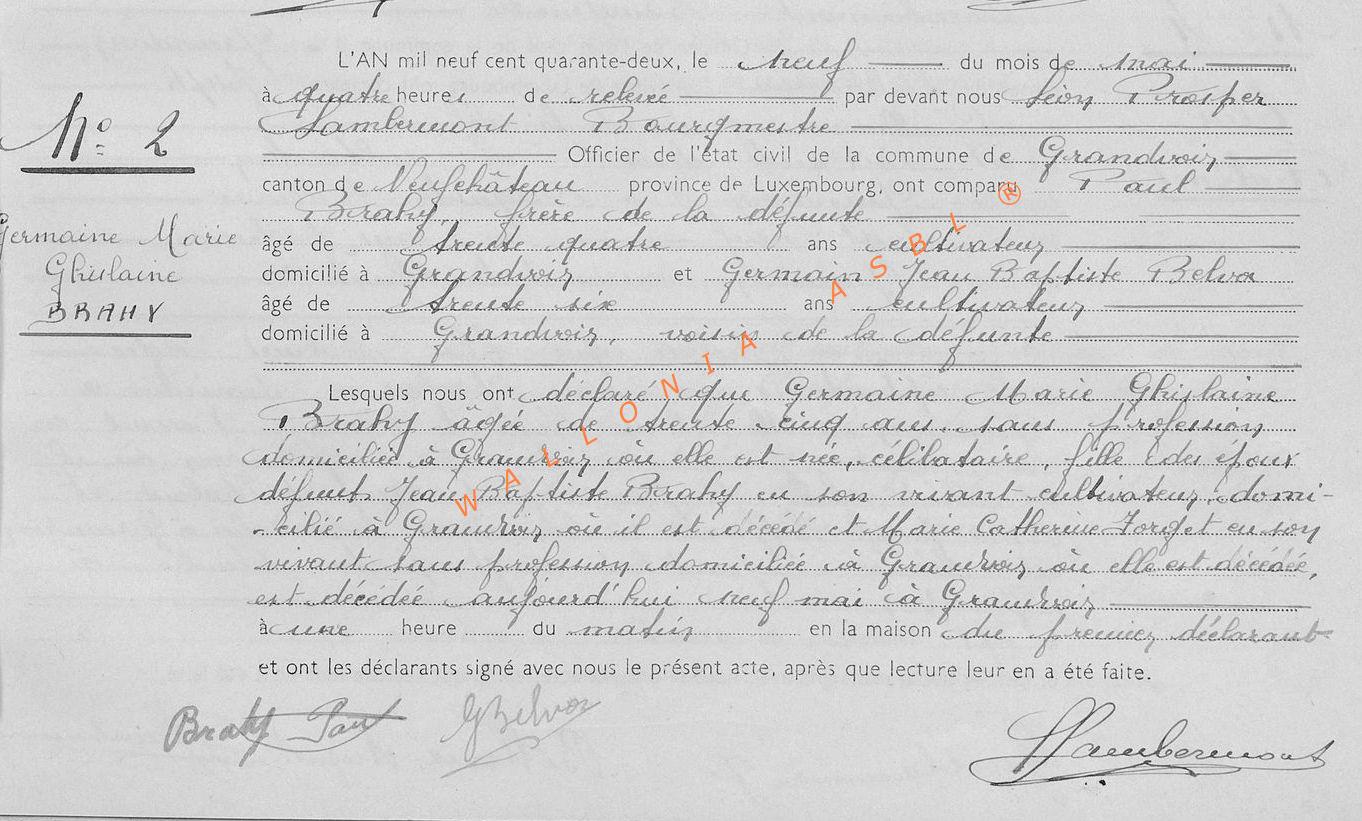 L'AN mil neuf cent quarante-deux, le neuf du mois de mai
à quatre heures de relevée par devant nous Léon Prosper
Lambermont Bourgmestre
Officier de l'état civil de la commune de Grandvoir
canton de Neufchâteau province de Luxembourg, ont comparu Paul
Brahy, frère de la défunte
âgé de trente quatre ans cultivateur
domicilié à Grandvoir et Germain Jean Baptiste Belva
âgé de trente six ans cultivateur
domicilié à Grandvoir, voisin de la défunte
Lesquels nous ont déclaré que Germaine Marie Ghislaine
Brahy âgée de trente cinq ans, sans profession
domiciliée à Grandvoir où elle est née, célibataire, fille des époux
défunts Jean Baptiste Brahy en son vivant cultivateur, domi-
-cilié à Grandvoir où il est décédé et Marie Catherine Forget en son
vivant sans profession domiciliée à Grandvoir où elle est décédée,
est décédée aujourd'hui neuf mai à Grandvoir
à une heure du matin en la maison du premier déclarant
et ont les déclarants signé avec nous le présent acte, après que lecture leur en a été faite.
N° 2
Germaine Marie
Ghislaine
BRAHY
Brahy Paul
GBelva
Lambermont
WALLONIA ASBL ®